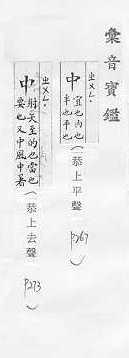 彙音寶鑑
ㄓㄨㄥ
中 宜也內也
半也平也
(恭上平聲 P267)
ㄓㄨㄥˋ
中 射矢至的也當也
要也又中風中著
(恭上去聲 P273)